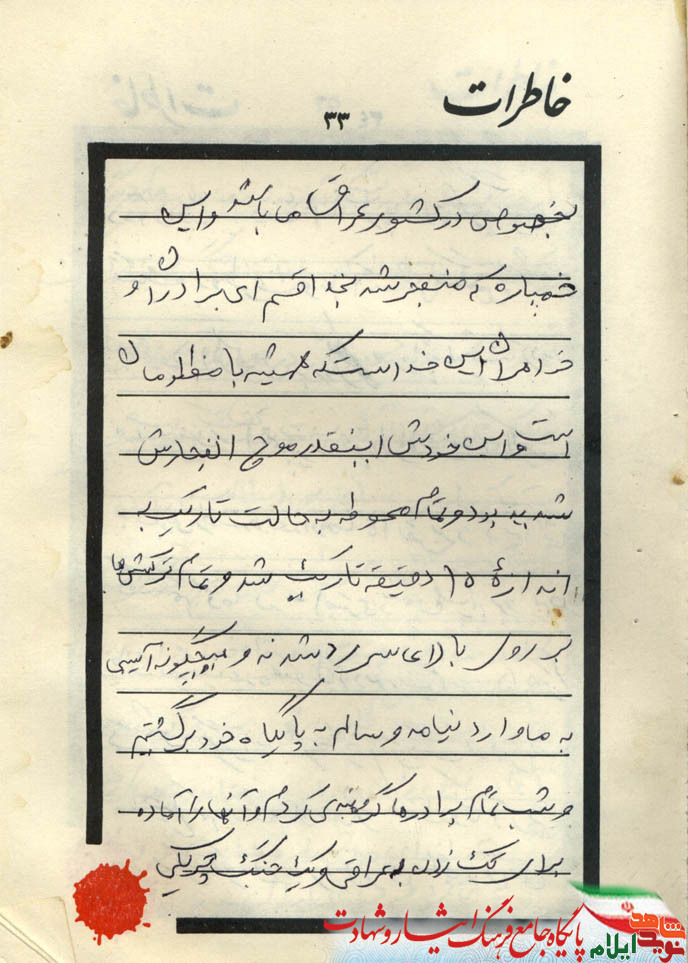 خاطرات
۳۳
بخصوص در کشور عراق می باشد و این
خمپاره که منفجر شد بخدا قسم ای برادران و
خواهران این خداست که همیشه با مظلومان
است و این خودش اینقدر موج انفجارش
شدید بود و تمام محوطه به حالت تاریک به
اندازهٔ ۱۵ دقیقه تاریک شد و تمام ترکشها
بر روی بالای سر رد شدند و هیچگونه آسیبی
به ما وارد نیامد و سالم به پایگاه خود برگشتیم
و شب تمام برادرها گردهم‌ کردم و آنها را آماده
برای تک زدن به عراقی و یک جنگ چریکی
پایگاه جامع فرهنگ ایثار و شهادت
نوید شاهد
ایلام